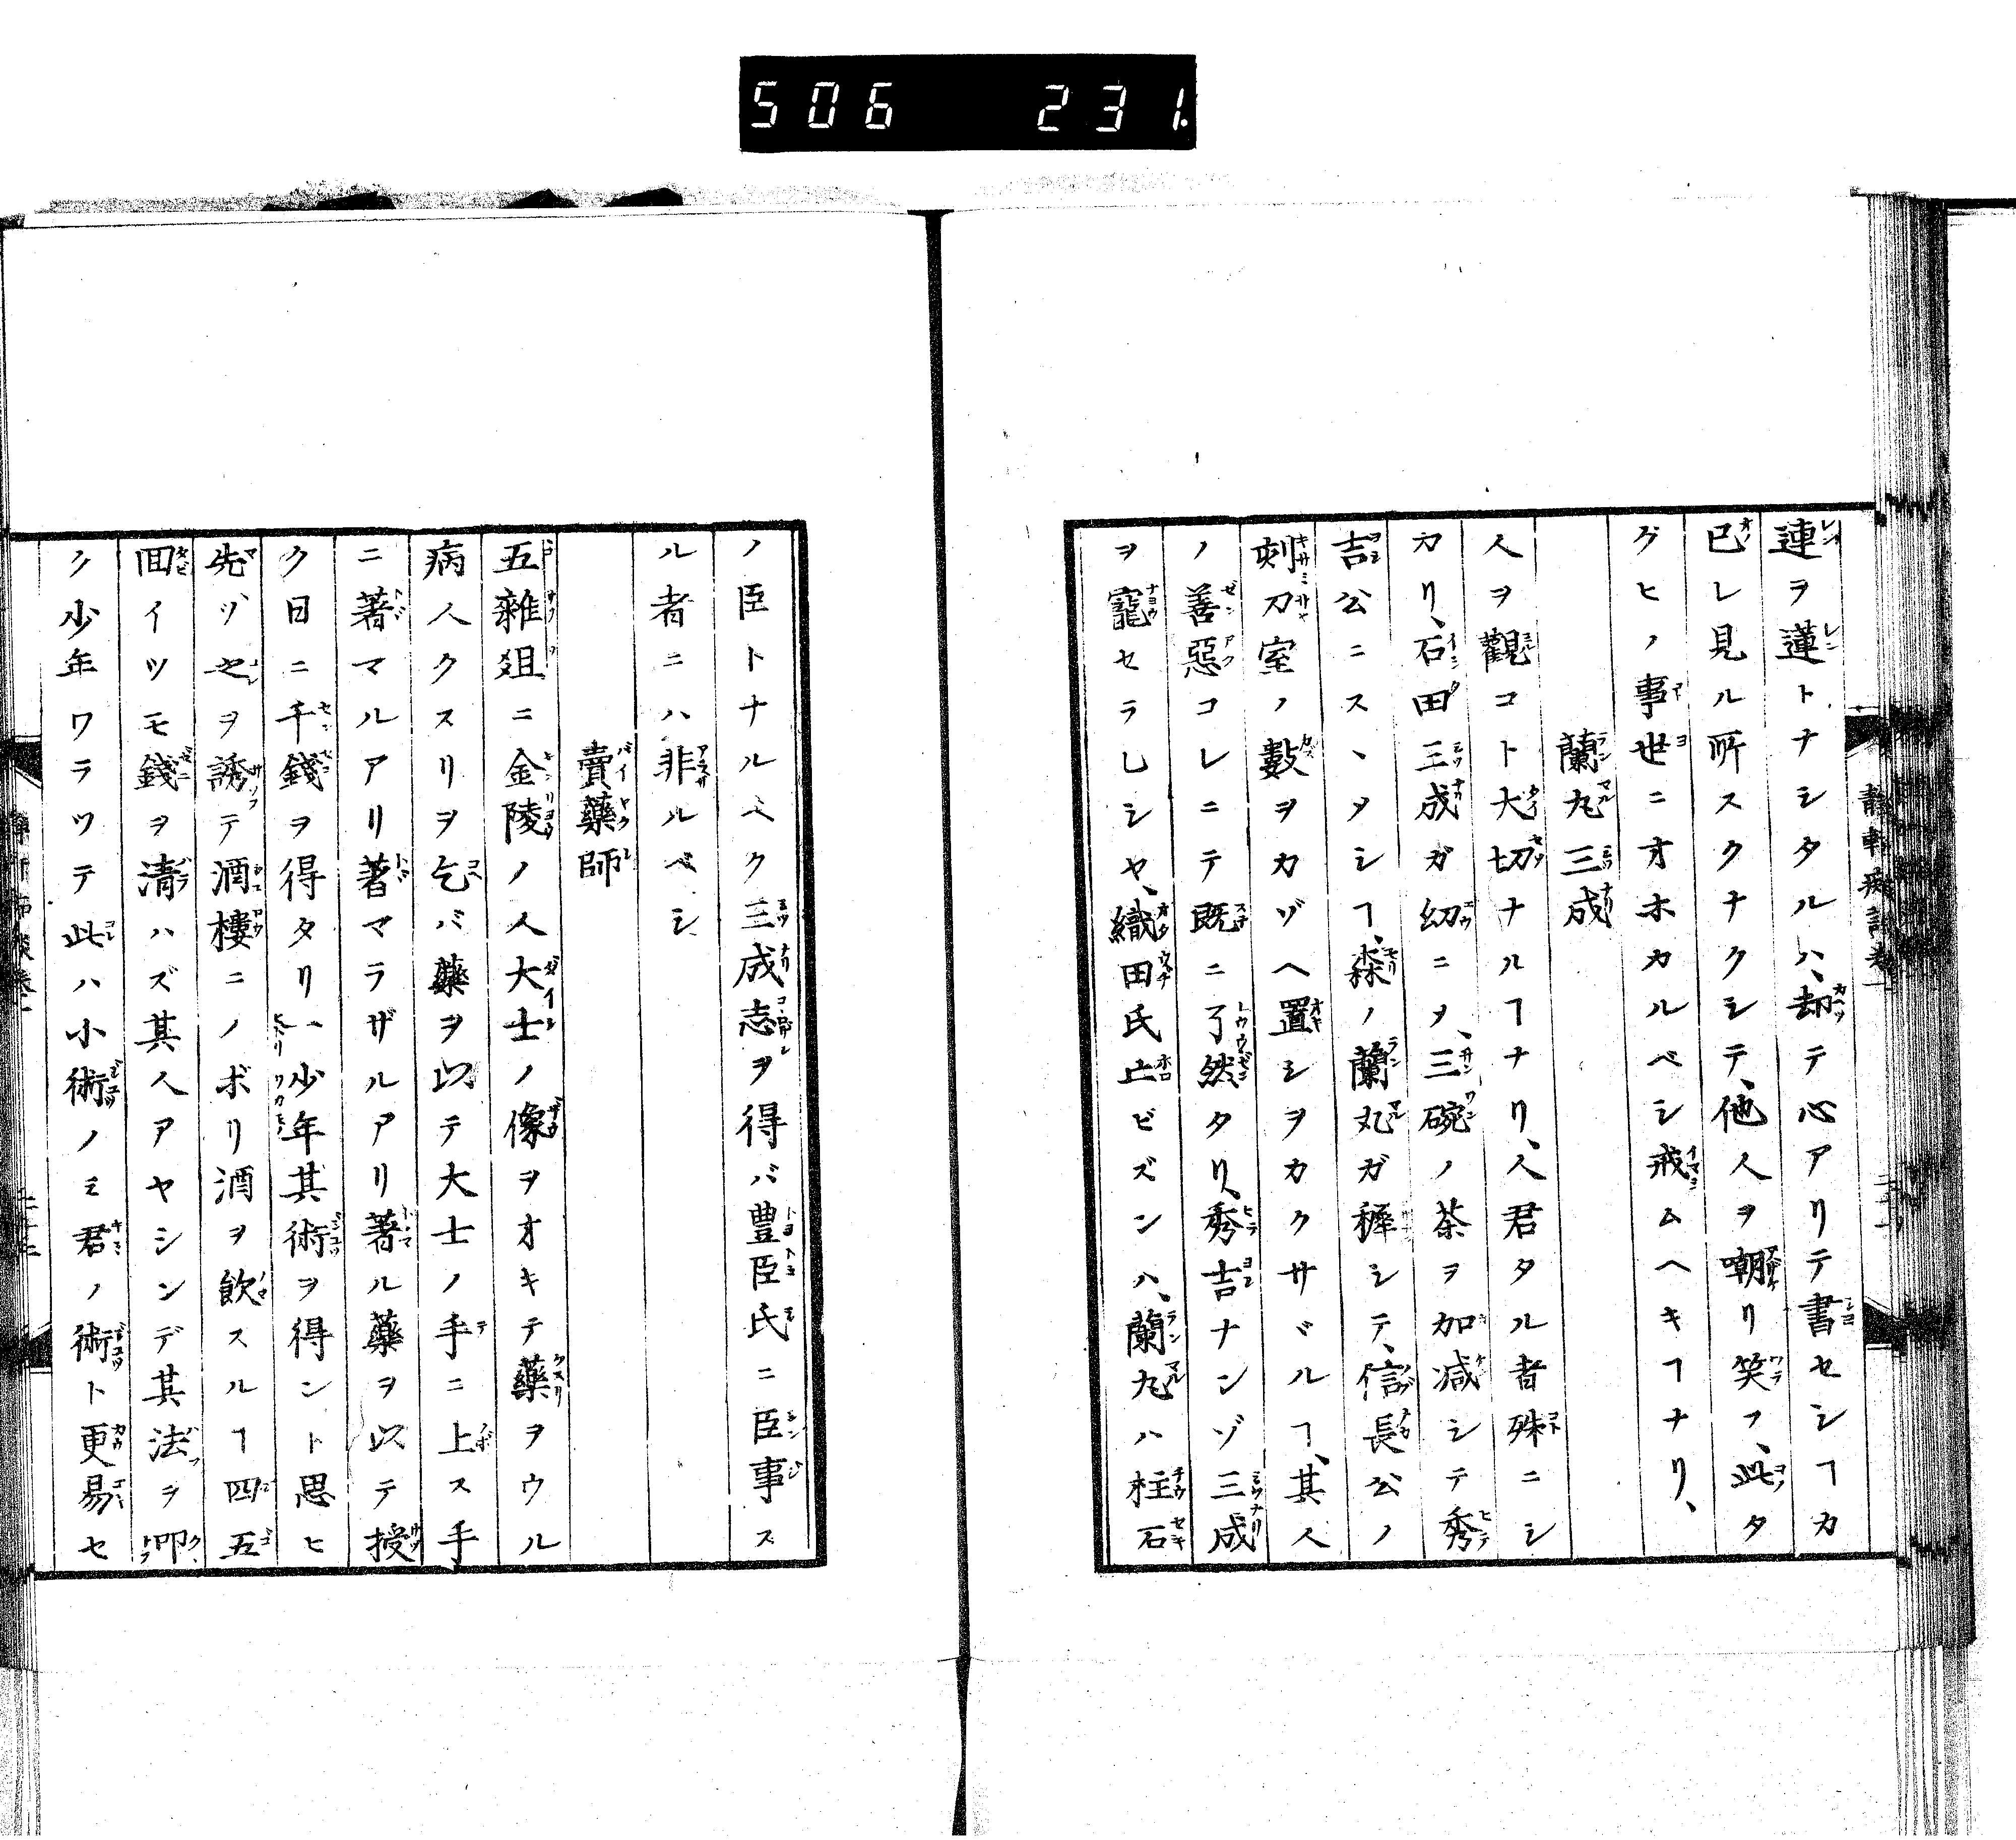 506 231.
連ヲ蓮トナシタルハ、却テ心アリテ書セシヿカ
已レ見ル所スクナクシテ、他人ヲ嘲リ笑フ、此タ
グヒノ事世ニオホカルベシ戒ムヘキヿナリ、
蘭丸三成
人ヲ觀コト大切ナルヿナリ、人君タル者殊ニシ
カリ、石田三成ガ幼ニヲ、三碗ノ茶ヲ加減シテ秀
吉公ニスヽタシヿ、森ノ蘭丸ガ穉シテ、信長公ノ
刻刀室ノ數ヲカゾヘ置シヲカクサヾルヿ、其人
ノ善惡コレニテ既ニ了然タリ、秀吉ナンゾ三成
ヲ寵セラレシヤ、織田氏亡ビズンハ、蘭丸ハ柱石
ノ臣トナルベク三成志ヲ得バ豊臣氏ニ臣事ス
ル者ニハ非ルベシ
賣藥師
五雜俎ニ金陵ノ人大士ノ像ヲオキテ藥ヲウル
病人クスリヲ乞バ藥ヲ以テ大士ノ手ニ上ス手
ニ著マルアリ著マラザルアリ著ル藥ヲ以テ授
ク日ニ千錢ヲ得タリ一少年其術ヲ得ント思ヒ
先ヅ之ヲ誘テ酒樓ニノボリ酒ヲ飲スルヿ四五
回イツモ錢ヲ清ハズ其人アヤシンデ其法ヲ叩
ク少年ワラツテ此ハ小術ノミ君ノ術ト更易セ